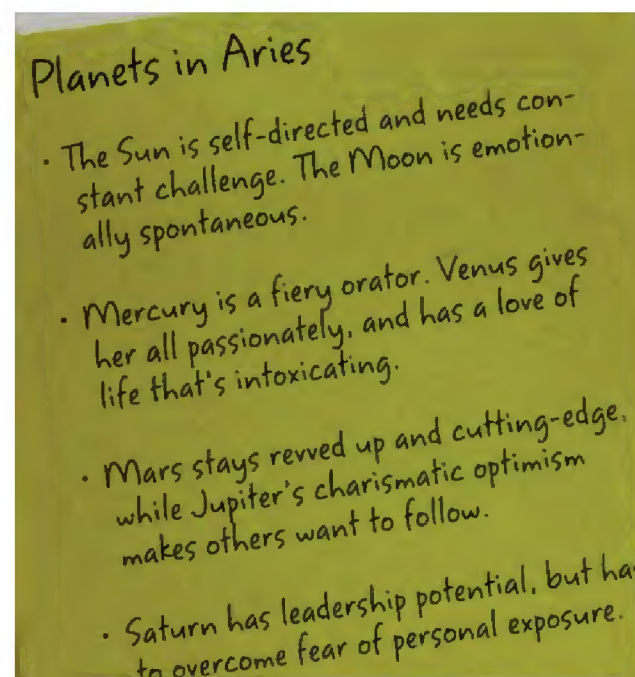 Planets in Aries
· The Sun is self-directed and needs con-
stant challenge. The Moon is emotion-
ally spontaneous.
· Mercury is a fiery orator. Venus gives
her all passionately, and has a love of
life that's intoxicating.
· Mars stays revved up and cutting-edge,
while Jupiter's charismatic optimism
makes others want to follow.
· Saturn has leadership potential, but has
to overcome fear of personal exposure.